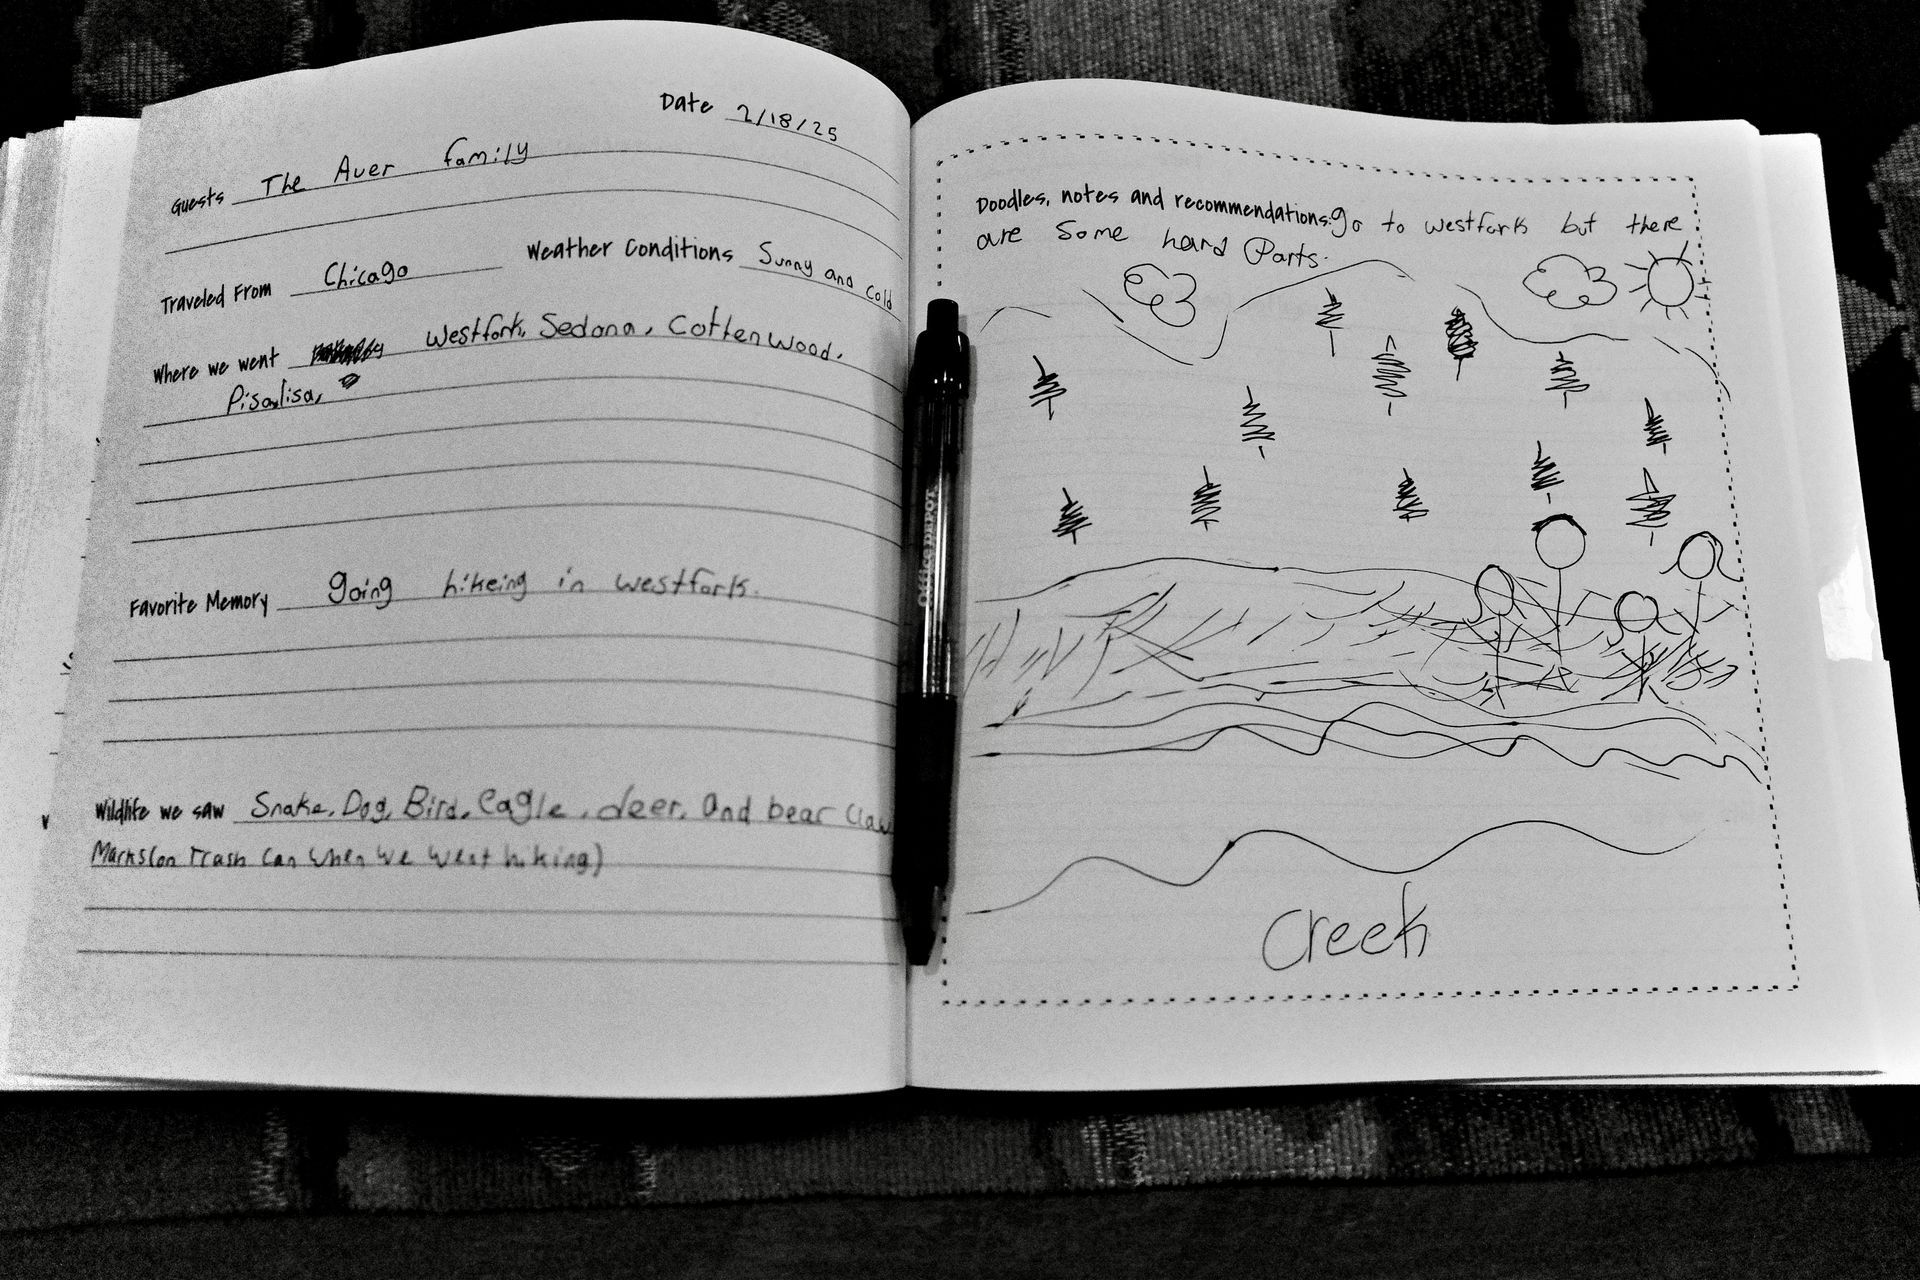 Date 2/18/25
Guests The Auer family
Traveled From Chicago Weather Conditions Sunny and cold
Where we went Westfork, Sedona, Cottenwood,
Pisalisa,
Favorite Memory going hikeing in westfork.
Wildlife we saw Snake, Dog, Bird, Eagle, deer, and bear claw
Marks(on Trash can when we went hiking)
Office DEPOT
Doodles, notes and recommendations: go to westfork but there
are some hard Parts.
Creek